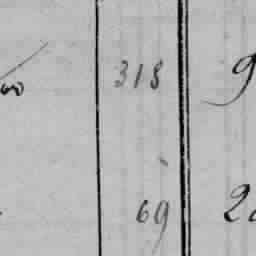 318 9
69 2